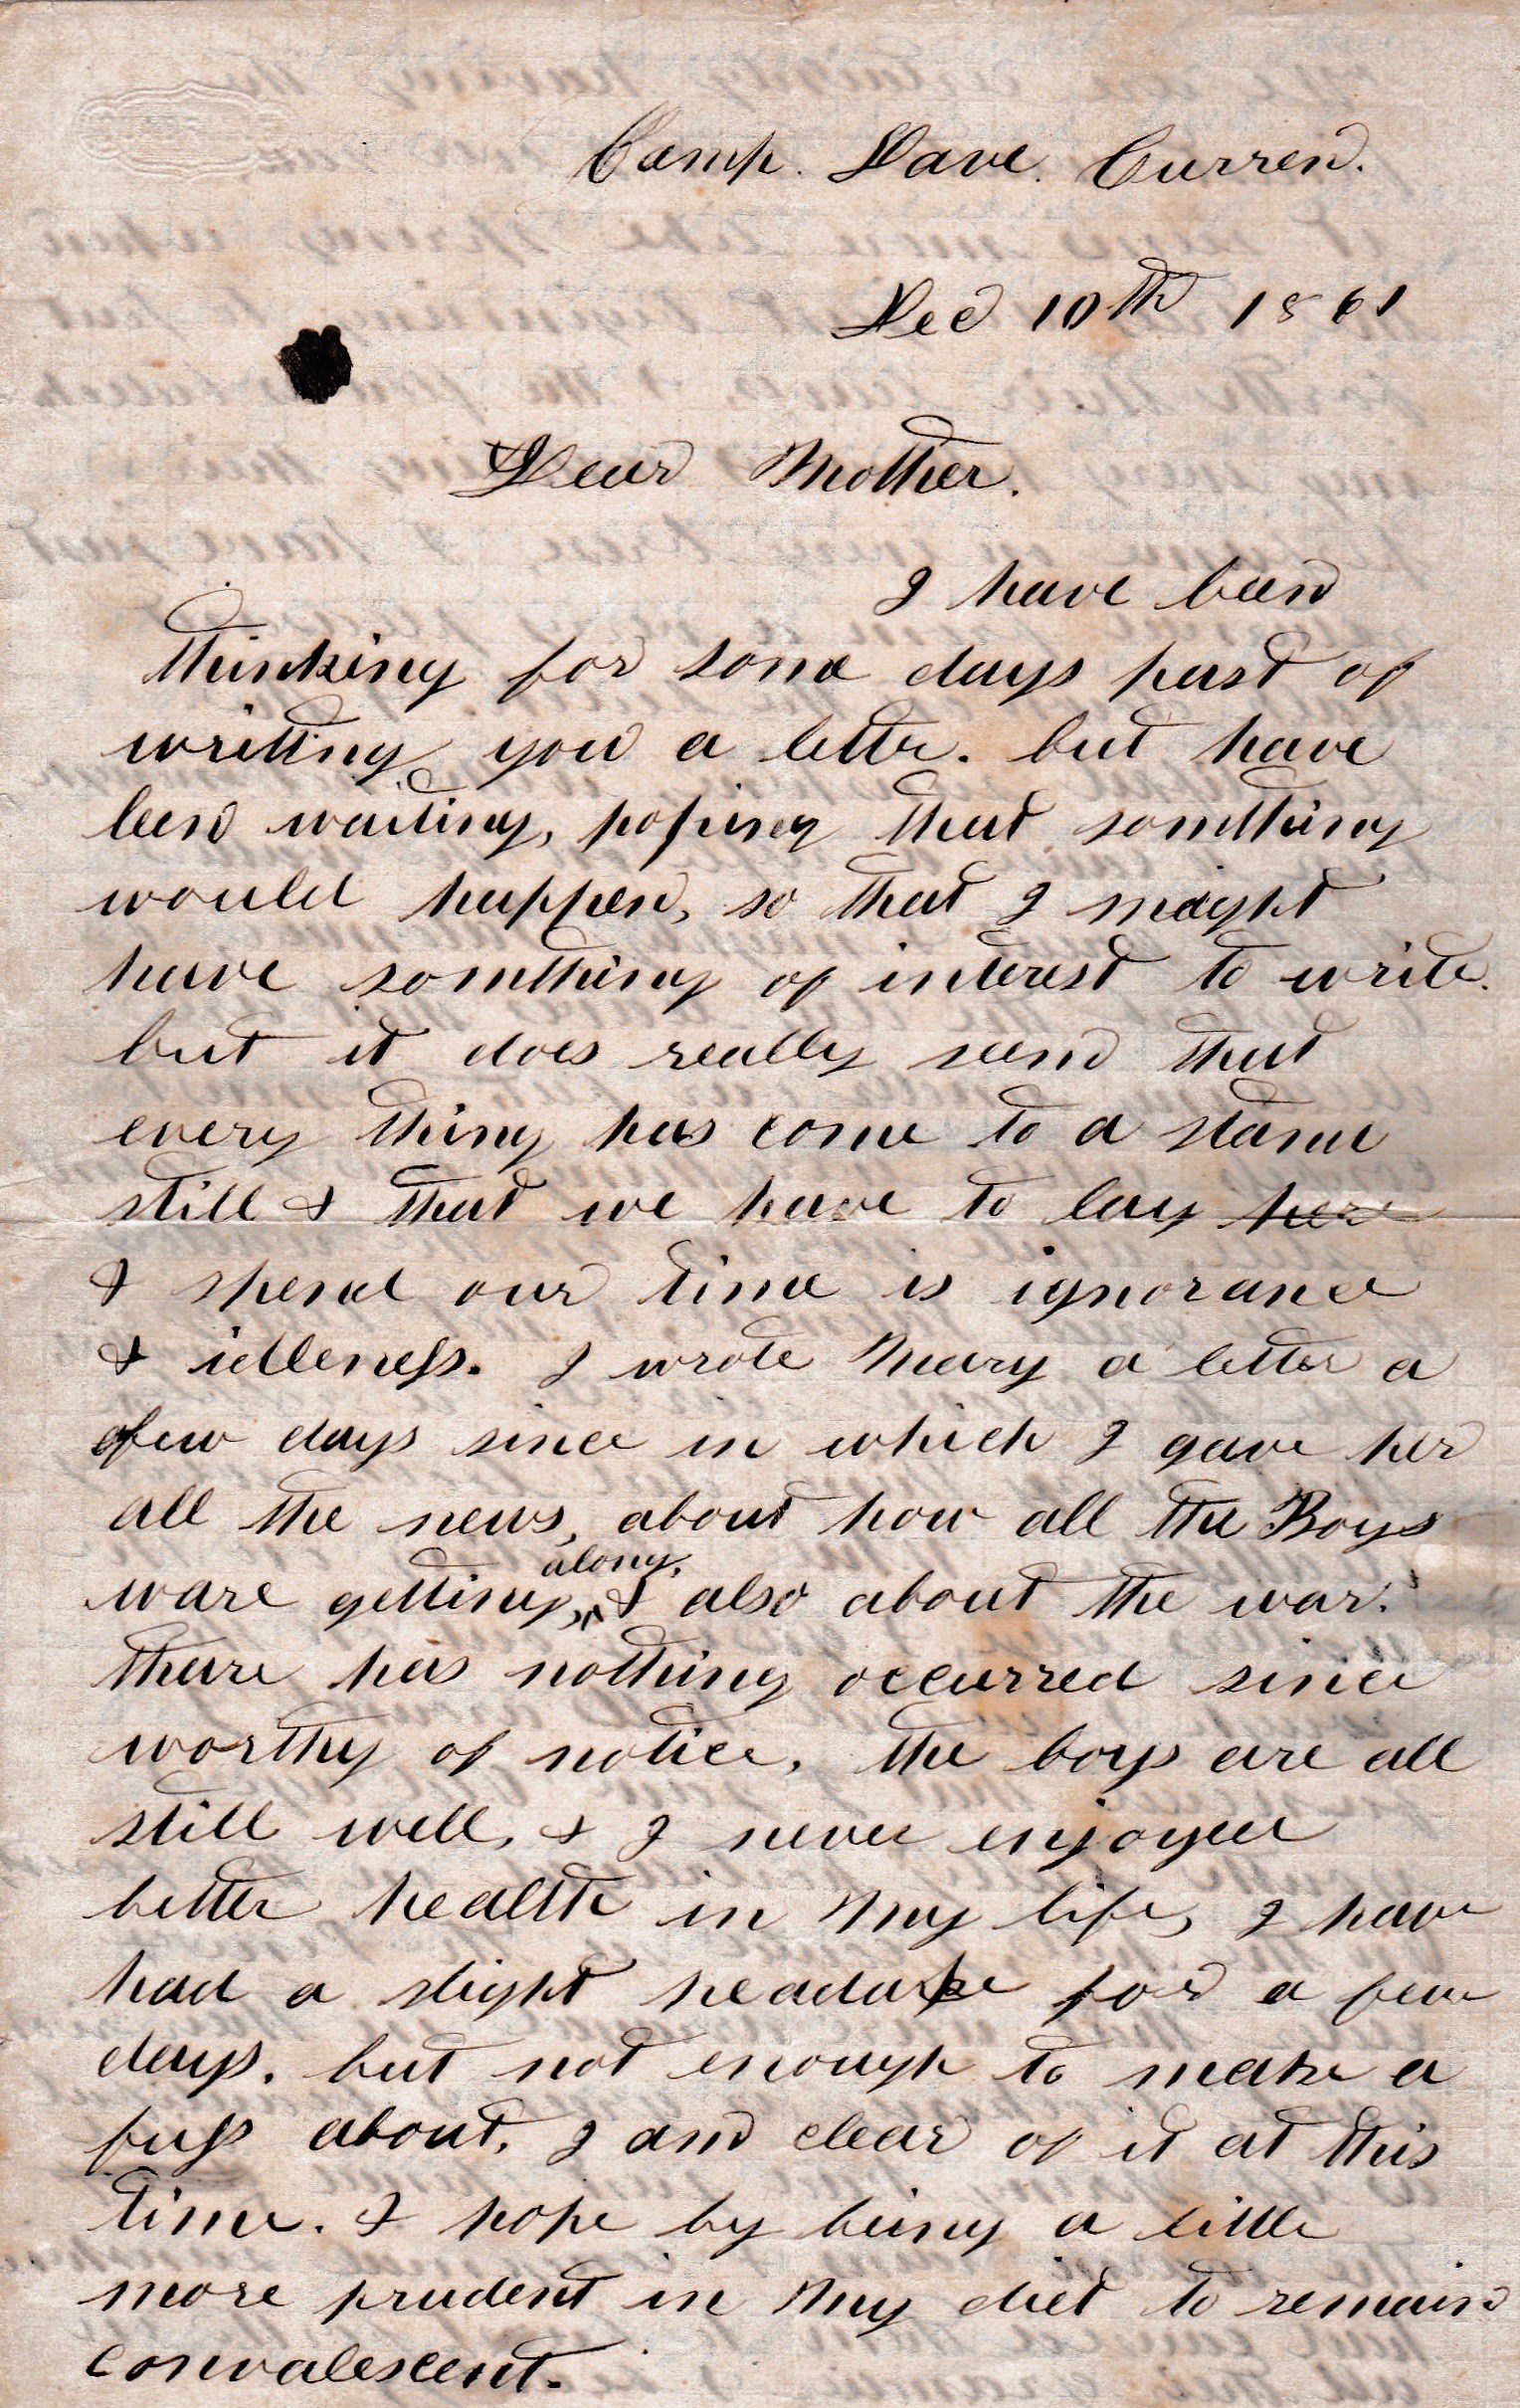 Camp. Dave. Curren.
Dec 10th 1861
Dear Mother.
I have been
thinking for some days past of
writting you a letter. but have
been waiting, hoping that somthing
would happen, so that I might
have somthing of interest to write.
but it does really seem that
every thing has come to a stand
still & that we have to lay here
& spend our time is ignorance
& idleness. I wrote Mary a letter a
few days since in which I gave her
all the news, about how all the Boys
along.
ware getting, & also about the war.
thare has nothing occurred since
worthy of notice, the boys are all
still well, & I never enjoyed
better health in my life, I have
had a slight headache for a few
days. but not enough to make a
fuss about, I am clear of it at this
time. & hope by being a little
more prudent in my diet to remain
convalescent.